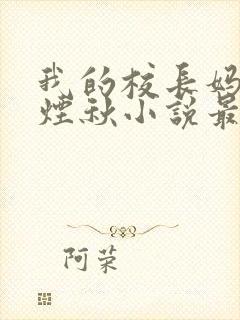 我的校長妈
煙秋小說最
阿荣